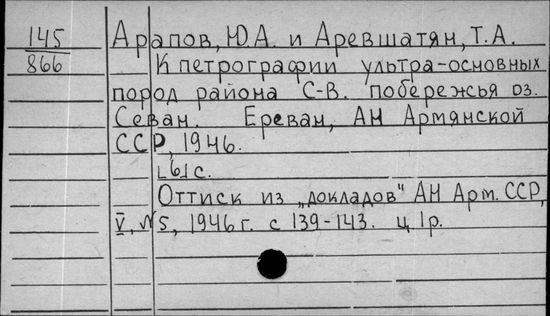 145 Арапов, Ю.А. и Аревшатян, Т.А.
866 К петрографии ультра-основных
пород района С-В. побережья оз.
Севан. Ереван, АН Армянской
ССР, 1946.
[6] с.
Оттиск из „докладов" АН Арм. ССР,
V, № 5, 1946 г. с 139-143. ц. 1р.